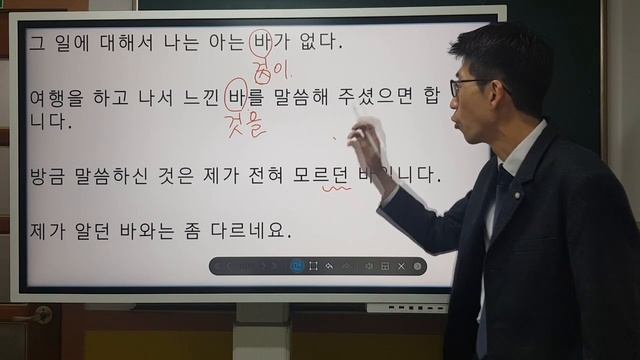 그 일에 대해서 나는 아는 바가 없다.
것이.
여행을 하고 나서 느낀 바를 말씀해 주셨으면 합
니다.
것을
방금 말씀하신 것은 제가 전혀 모르던 바입니다.
제가 알던 바와는 좀 다르네요.